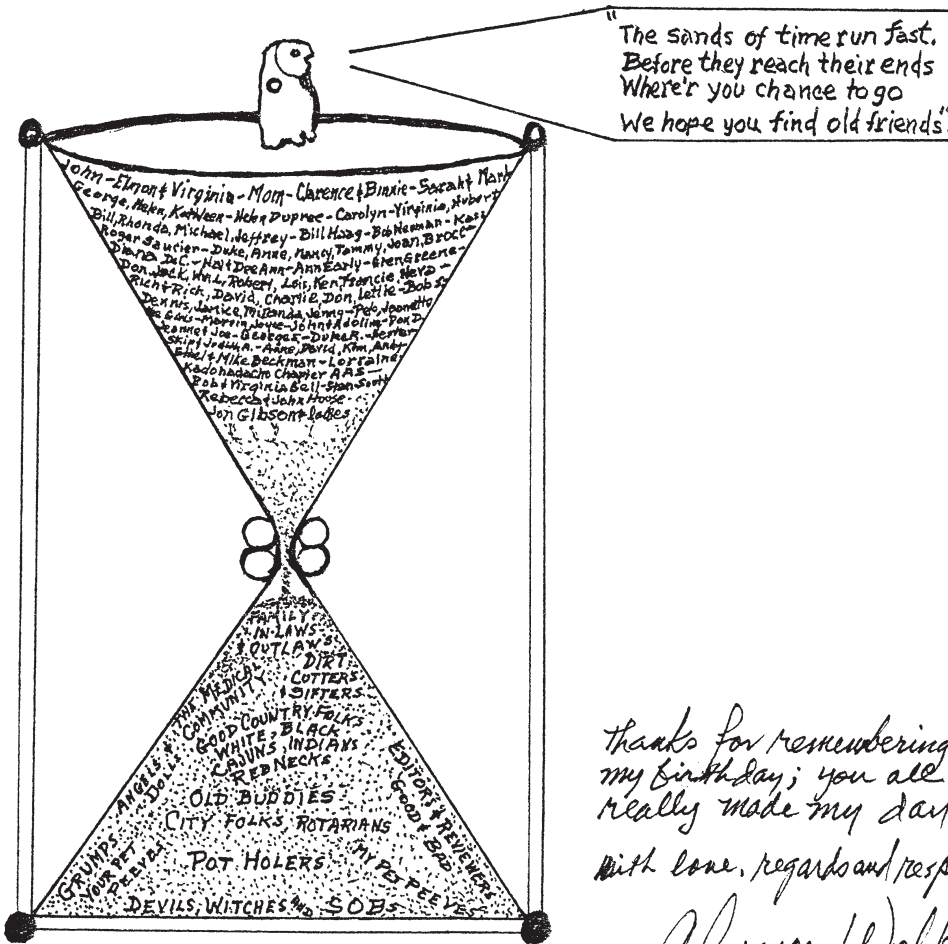 "The sands of time run fast.
Before they reach their ends
Where'r you chance to go
We hope you find old friends"
John-Elmon & Virginia-Mom-Clarence & Binnie-Sarah & Mark
George, Helen, Kathleen-Helen Dupree-Carolyn-Virginia, Hubert
Bill, Rhonda, Michael, Jeffrey-Bill Haag-Bob Neuman-
Roger Saucier-Duke, Anne, Nancy, Tommy, Joan, Brock
Diana DeC.-Hal & DeeAnn-Ann Early-Glen Greene-
Don, Jack, Robert, Lois, Ken, Francie,
Rich & Rich, David, Charlie, Don, Leslie-Bob S-
Dennis, Janice, Miranda, Jenny-Pete, Jeanette
Girls-Marvin, Joyce-John &
Jeanne & Joe-Georges-Duke R.-Hester
Skip & -Anne, David, Kim, Andy
Ethel & Mike Beckman-Lorraine,
Kadohadacho Chapter AAS-
Bob & Virginia Bell-Stan Scott
Rebecca & John House-
Jon Gibson & ladies
FAMILY
IN-LAWS
& OUTLAWS
DIRT
CUTTERS
& SIFTERS
THE MEDICAL
COMMUNITY
GOOD COUNTRY FOLKS
WHITE, BLACK
CAJUNS, INDIANS
RED NECKS
ANGELS &
DOLLS
EDITORS & REVIEWERS
GOOD & BAD
OLD BUDDIES
CITY FOLKS, ROTARIANS
GRUMPS
YOUR PET
PEEVES
POT HOLERS
MY PET PEEVES
DEVILS, WITCHES AND SOBs
Thanks for remembering
my birthday; you all
really made my day
with love, regards and resp